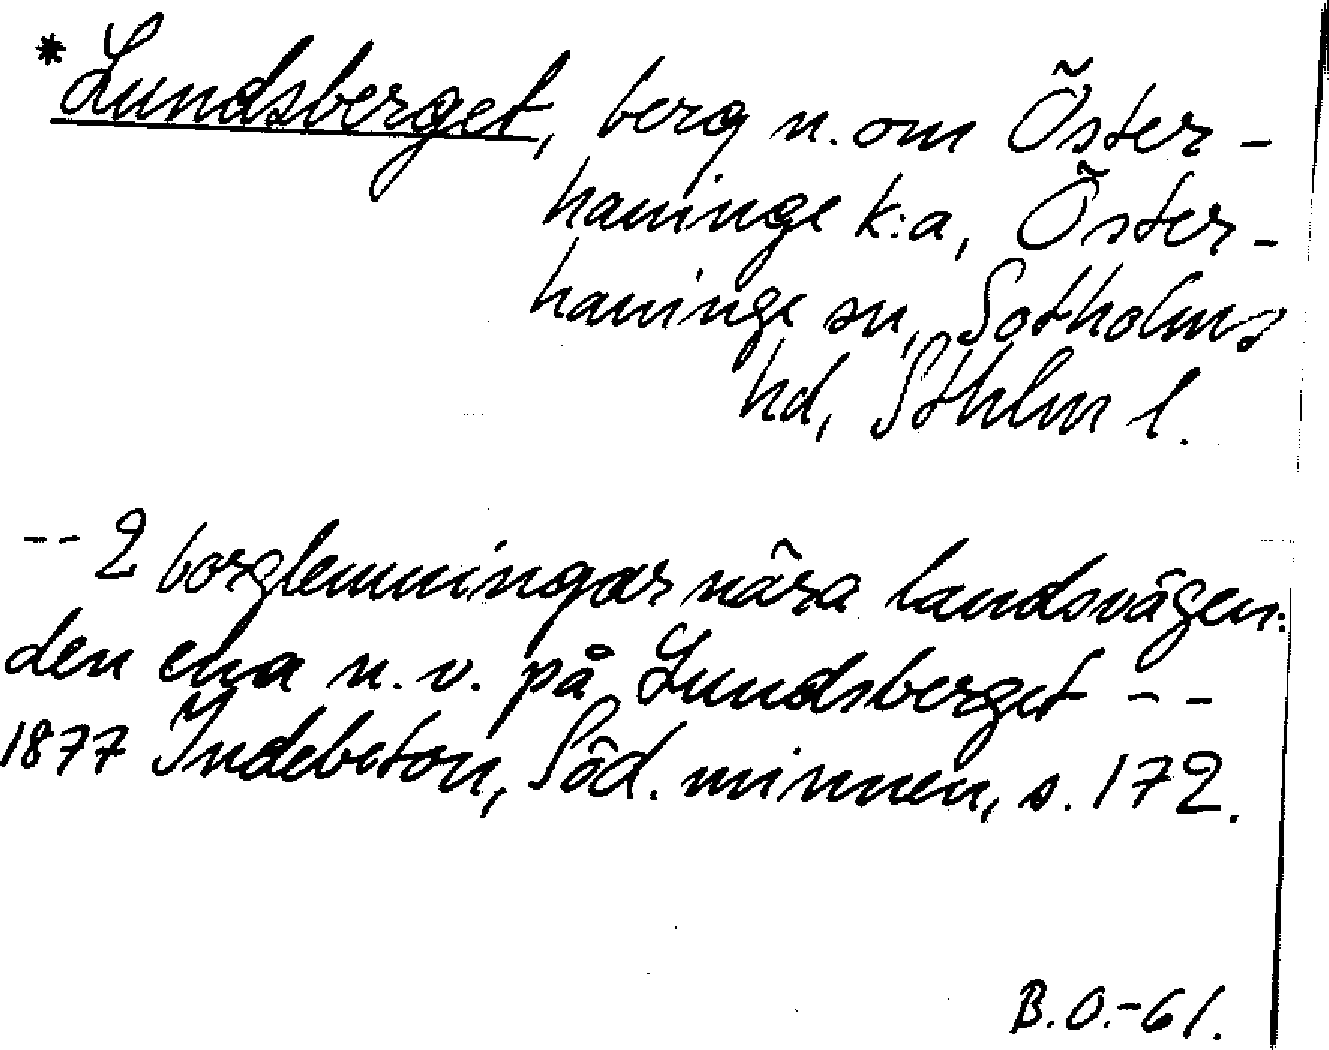 *Lundsberget, berg n. om Öster-
haninge k:a, Öster-
haninge sn, Sotholms
hd, Sthlm l.
-- 2 borglemningar nära landsvägen:
den ena n. v. på Lundsberget --
1877 Indebetou, Söd. minnen, s. 172.
B.O.-61.